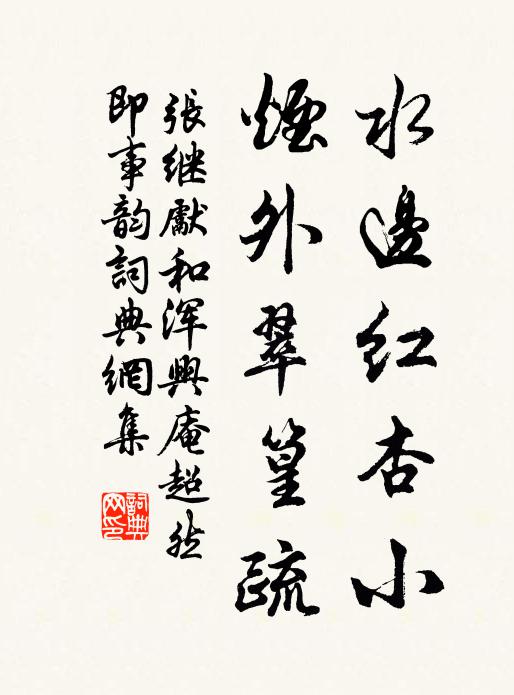 水邊紅杏小
煙外翠篁疏
張继獻和渾興庵超然
即事韵詞典網集
詞典网印